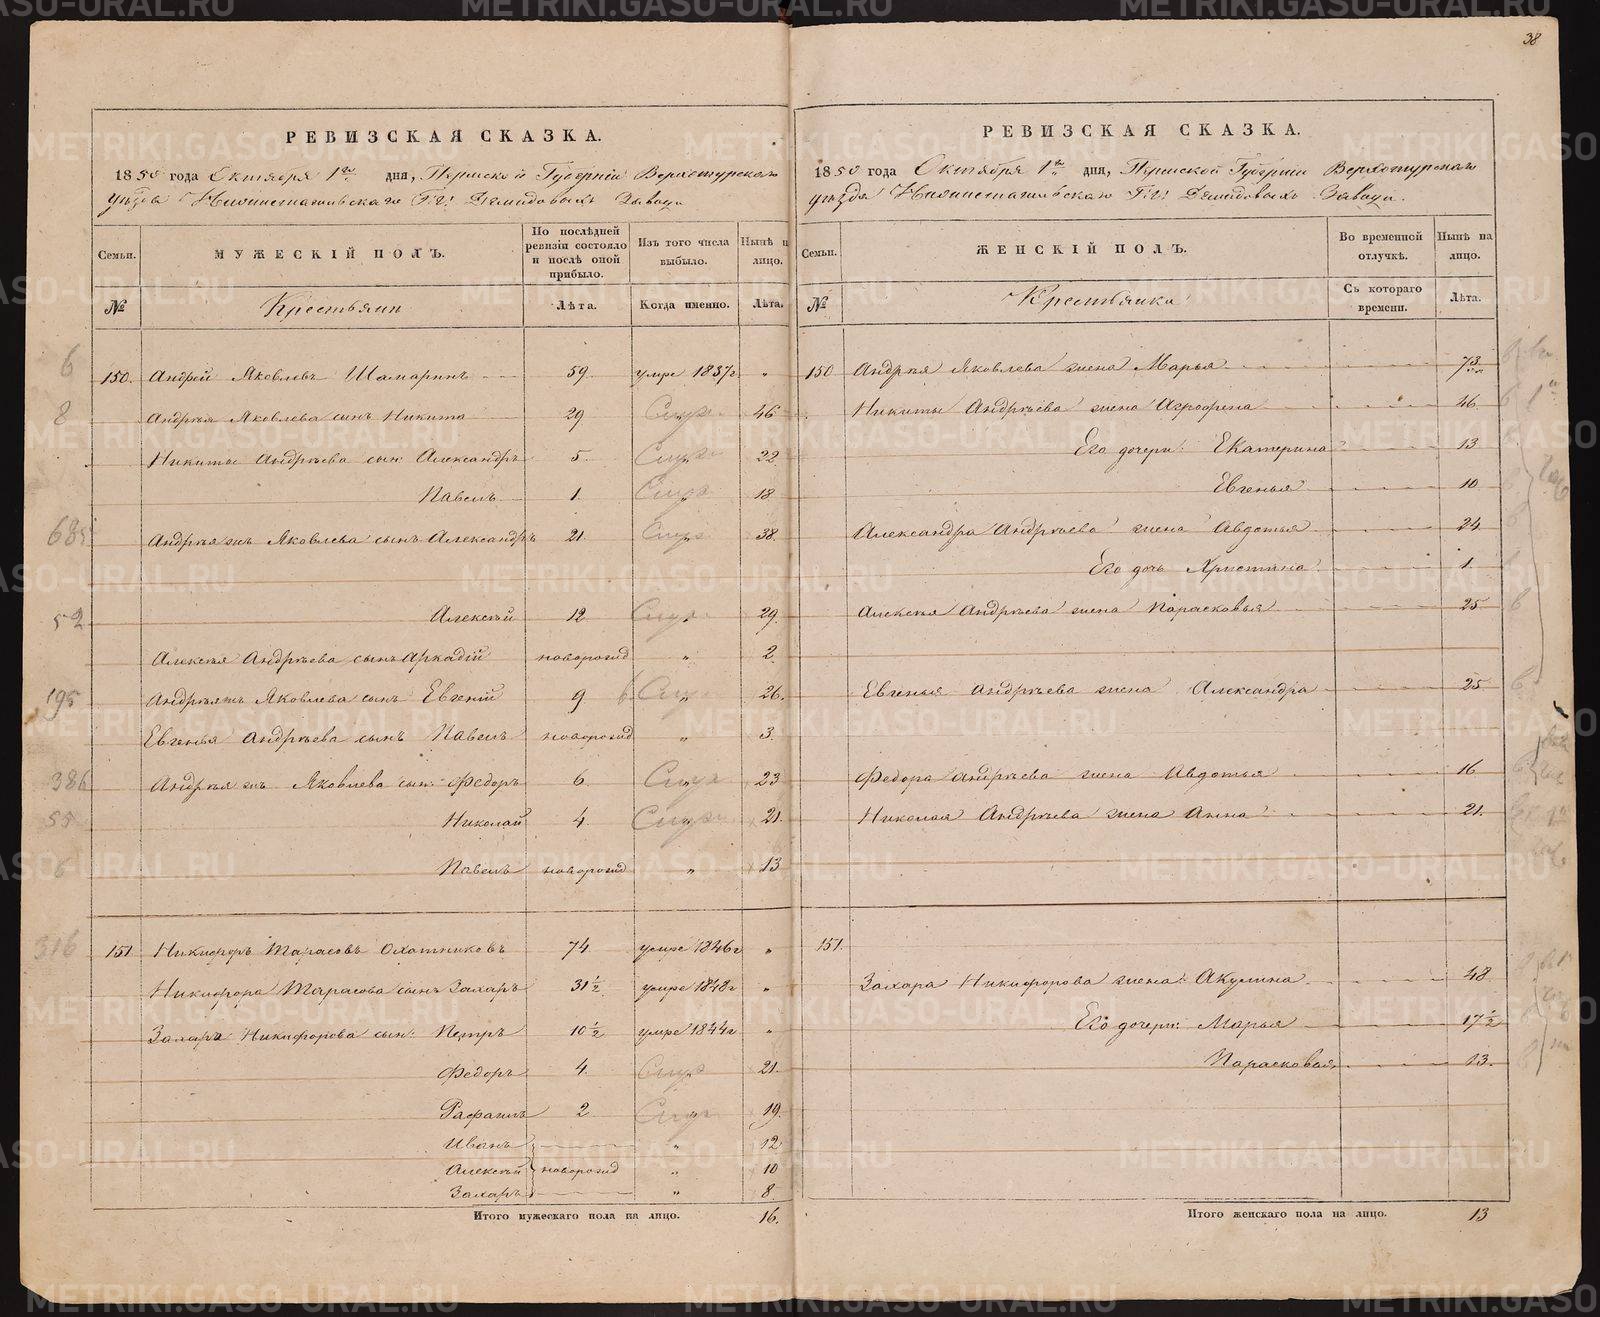 38
РЕВИЗСКАЯ СКАЗКА.
1850 года Октября 1го дня, Пермской Губернiи Верхотурскаго
уѣзда Нижнетагильскаго Г.г. Демидовыхъ Завода
Семьи. МУЖЕСКIЙ ПОЛЪ. По послѣдней ревизiи состояло и послѣ оной прибыло. Изъ того числа выбыло. Нынѣ на лицо.
№ Крестьянъ Лѣта. Когда именно. Лѣта.
6 150. Андрей Яковлевъ Шамаринъ 59. умре 1837г. "
8 Андрея Яковлева сынъ Никита 29 " 46
Никиты Андрѣева сын: Александръ 5. " 22
Павелъ 1. " 18
685 Андрея жъ Яковлева сынъ Александръ 21. " 38.
52 Алексѣй 12 " 29
Алексѣя Андрѣева сынъ Аркадiй новорожд " 2.
195 Андрея жъ Яковлева сынъ Евгенiй 9 " 26.
Евгенья Андрѣева сынъ Павелъ новорожд " 3.
386 Андрея жъ Яковлева сын: Федоръ 6. " 23
55 Николай 4. " 21.
6 Павелъ новорожд " 13
316 151 Никифоръ Тарасовъ Охотниковъ 74. умре 1846г "
Никифора Тарасова сынъ Захаръ 31½. умре 1848г "
Захара Никифорова сын: Петръ 10½ умре 1844г "
Федоръ 4. " 21.
Рафаилъ 2. " 19.
Иванъ " 12
Алексѣй новорожд " 10
Захаръ " 8.
Итого мужескаго пола на лицо. 16.
РЕВИЗСКАЯ СКАЗКА.
1850 года Октября 1го дня, Пермской Губернiи Верхотурскаго
уѣзда Нижнетагильскаго Г.г. Демидовыхъ Завода.
Семьи. ЖЕНСКIЙ ПОЛЪ. Во временной отлучкѣ. Нынѣ на лицо.
№ Крестьянки Съ котораго времени. Лѣта.
150 Андрея Яковлева жена Марья 73.
Никиты Андрѣева жена Агрофена 46
Его дочери: Екатерина 13
Евгенья 10
Александра Андрѣева жена Авдотья 24
Его дочь Христина 1.
Алексѣя Андрѣева жена Парасковья 25
Евгенья Андрѣева жена Александра 25
Федора Андрѣева жена Авдотья 16
Николая Андрѣева жена Анна 21.
151.
Захара Никифорова жена: Акулина 48
Его дочери: Марья 17½
Парасковья 13.
Итого женскаго пола на лицо. 13
METRIKI.GASO-URAL.RU